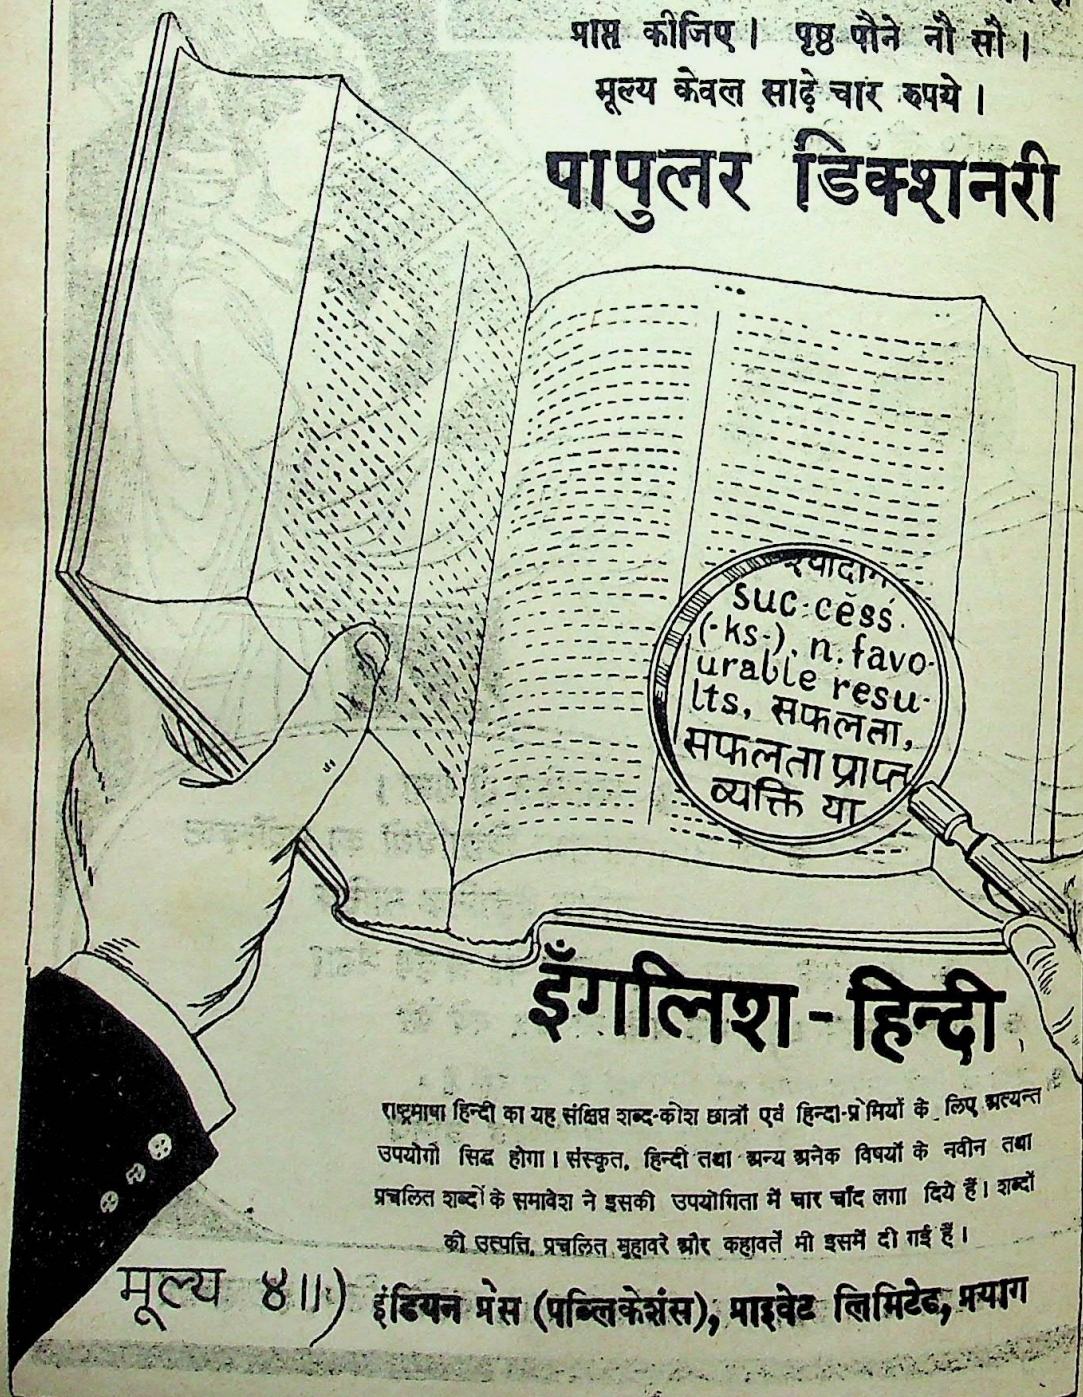 प्राप्त कीजिए। पृष्ठ पौने नौ सौ।
मूल्य केवल साढ़े चार रुपये।
पापुलर डिक्शनरी
suc·cĕss.
(·ks·). n. favo-
urable resu-
lts, सफलता,
सफलता प्राप्त
व्यक्ति या
इँगलिश-हिन्दी
राष्ट्रभाषा हिन्दी का यह संक्षिप्त शब्द-कोश छात्रों एवं हिन्दी-प्रेमियों के लिए अत्यन्त
उपयोगी सिद्ध होगा। संस्कृत, हिन्दी तथा अन्य अनेक विषयों के नवीन तथा
प्रचलित शब्दों के समावेश ने इसकी उपयोगिता में चार चाँद लगा दिये हैं। शब्दों
की उत्पत्ति, प्रचलित मुहावरे और कहावतें भी इसमें दी गई हैं।
मूल्य ४॥) इंडियन प्रेस (पब्लिकेशंस), प्राइवेट लिमिटेड, प्रयाग